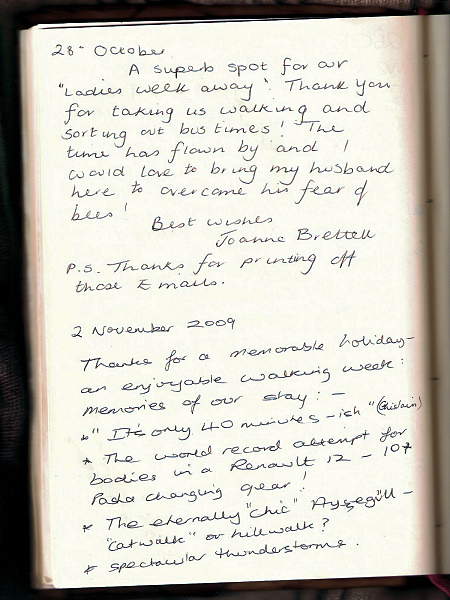 28th October
A superb spot for our
"Ladies week away". Thank you
for taking us walking and
sorting out bus times! The
time has flown by and I
would love to bring my husband
here to overcome his fear of
bees!
Best wishes
Joanne Brettell
P.S. Thanks for printing off
those Emails.
2 November 2009
Thanks for a memorable holiday -
an enjoyable walking week:
memories of our stay: -
* " It's only 40 minutes -ish" (Ghislain)
* The world record attempt for
bodies in a Renault 12 - 10+
Pada changing gear!
* The eternally "chic" Ayşegül -
"catwalk" or hillwalk?
* spectacular thunderstorms.